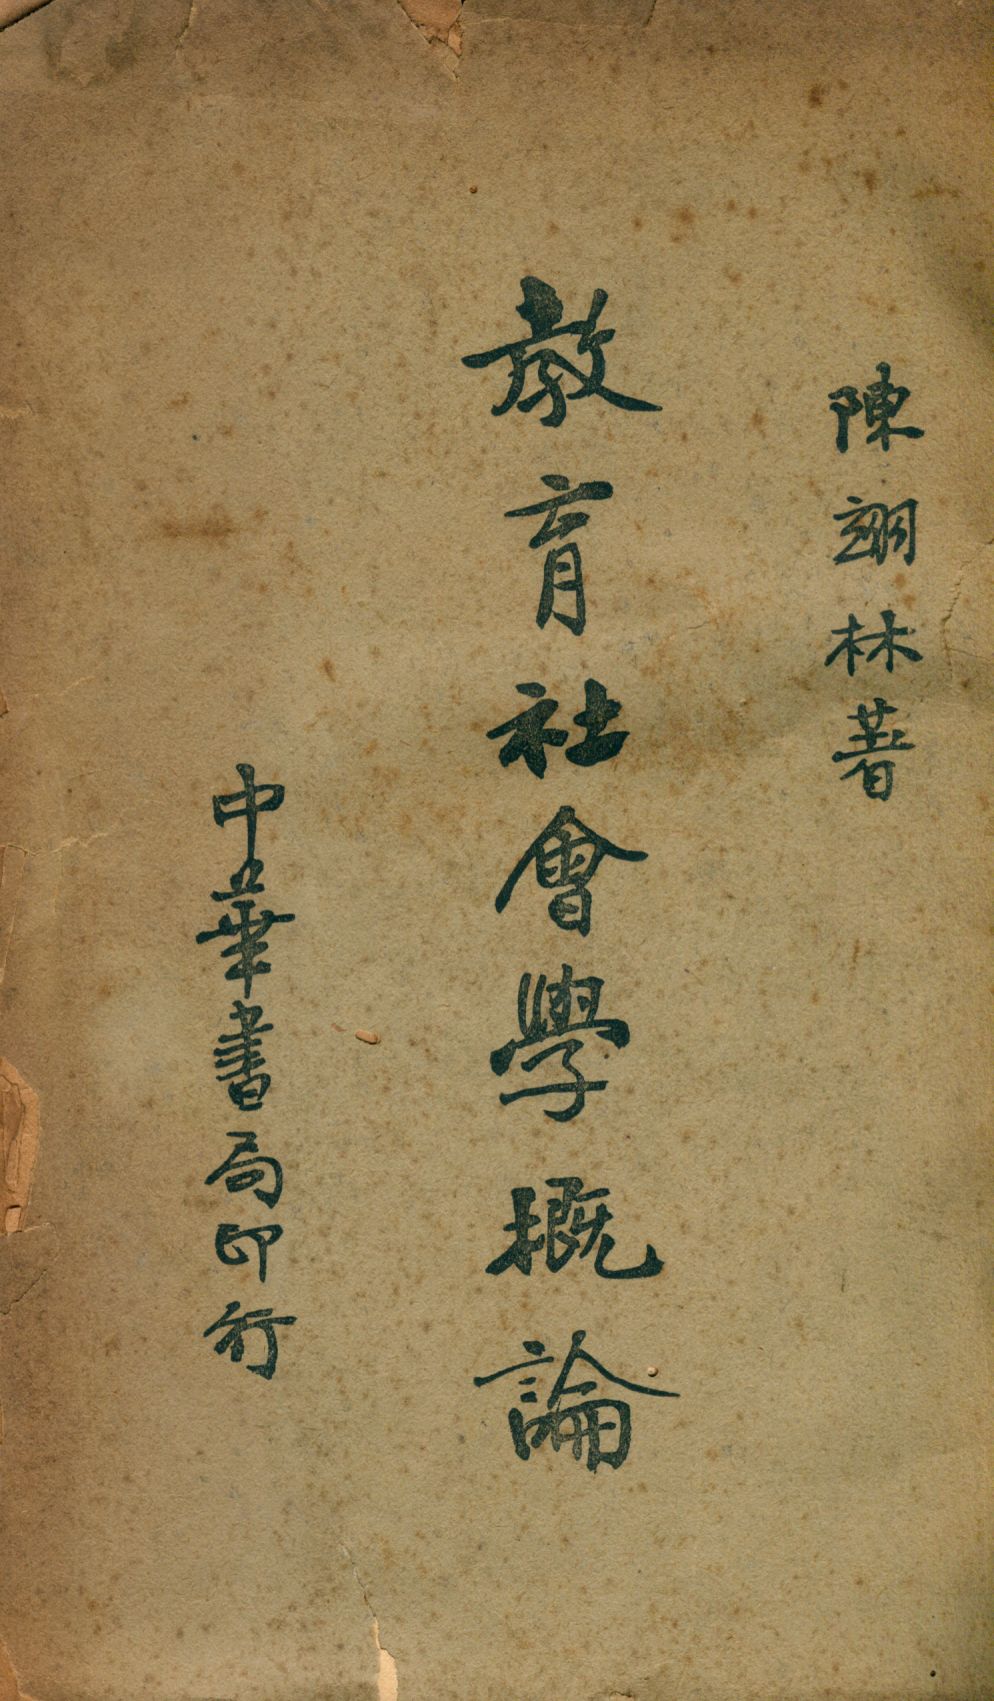 陳翊林著
教育社會學概論
中華書局印行